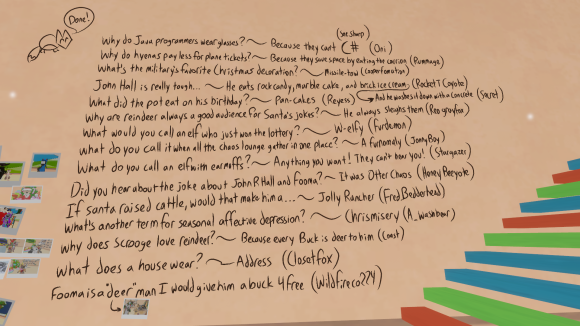 Done!
(See Sharp)
Why do Java programmers wear glasses? ~ Because they can't C# (Oni)
Why do hyenas pay less for plane tickets? ~ Because they save space by eating the carrion (Rummage)
What's the military's favorite Christmas decoration? ~ Missile-tow (Casperfomation)
John Hall is really tough... ~ He eats rock candy, marble cake, and brick ice cream. (RocketT Coyote)
What did the pot eat on his birthday? ~ Pan-cakes (Reyess) → And he washes it down with a concrete (Secret)
Why are reindeer always a good audience for Santa's jokes? ~ He always sleighs them (Reo grayfox)
What would you call an elf who just won the lottery? ~ W-elfy (Furdemon)
What do you call it when all the chaos lounge gather in one place? ~ A furnomaly (JonnyBoy)
What do you call an elf with earmuffs? ~ Anything you want! They can't hear you! (Stargazer)
Did you hear about the joke about John R Hall and Fooma? ~ It was Otter Chaos (Honey Beeyote)
If santa raised cattle, would that make him a... ~ Jolly Rancher (Fred Bedderhead)
What's another term for seasonal affective depression? ~ Chrismisery (A_washbear)
Why does Scrooge love reindeer? ~ Because every Buck is dear to him (Coast)
What does a house wear? ~ Address (Closetfox)
Fooma is a "deer" man I would give him a buck 4 free (Wildfireco274)